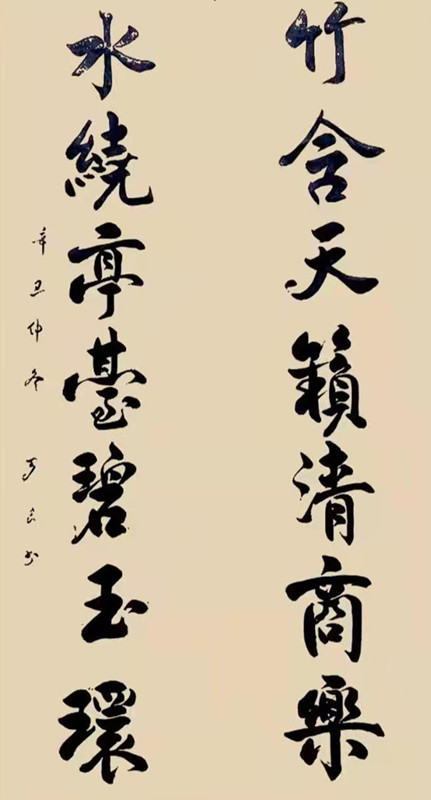 竹含天籟清商樂
水繞亭臺碧玉環
辛丑仲冬
书